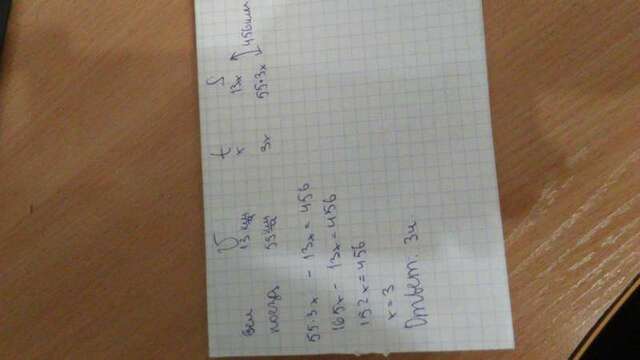 V t S
вел 13 км/ч x 13x
поезд 55 км/ч 3x 55·3x 456км
55·3x - 13x = 456
165x - 13x = 456
152x = 456
x = 3
Ответ: 3ч